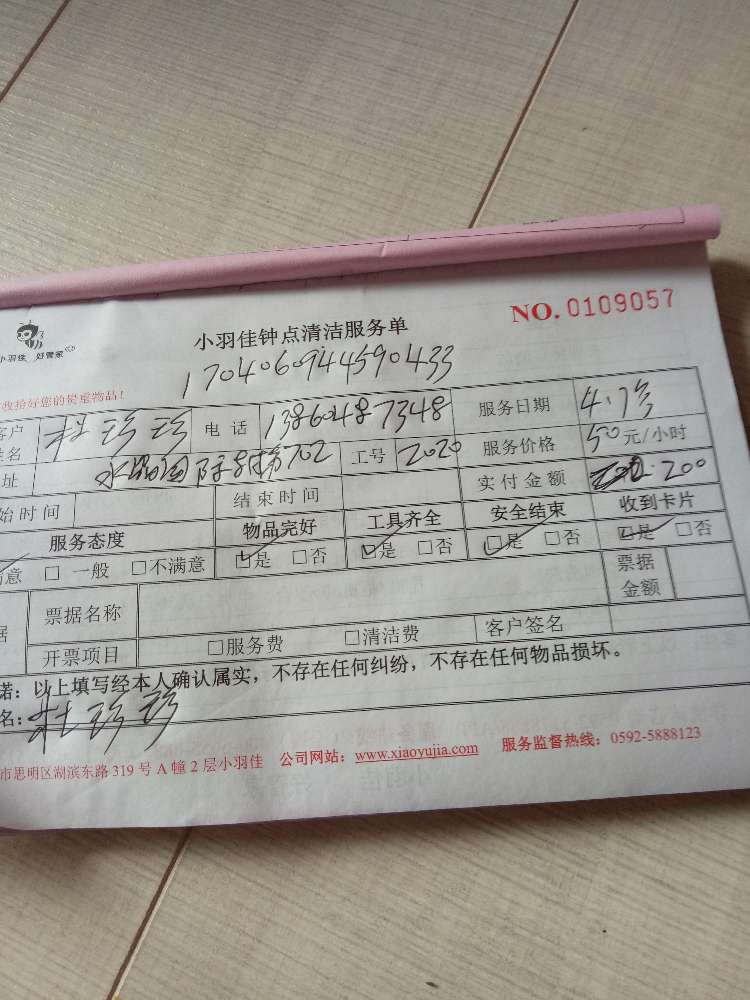 NO. 0109057
小羽佳 好管家
小羽佳钟点清洁服务单
170406094459 0433
收拾好您的贵重物品!
客户 杜珍珍 电话 13860487348 服务日期 4.13
姓名
址 702 工号 2020 服务价格 50元/小时
始时间 结束时间 实付金额 200
服务态度 物品完好 工具齐全 安全结束 收到卡片
满意 □ 一般 □不满意 ☑是 □否 ☑是 □否 ☑是 □否 ☑是 □否
据 票据名称 票据金额
开票项目 □服务费 □清洁费 客户签名
诺:以上填写经本人确认属实,不存在任何纠纷,不存在任何物品损坏。
名:杜珍珍
市思明区湖滨东路 319 号 A 幢 2 层小羽佳 公司网站:www.xiaoyujia.com 服务监督热线:0592-5888123